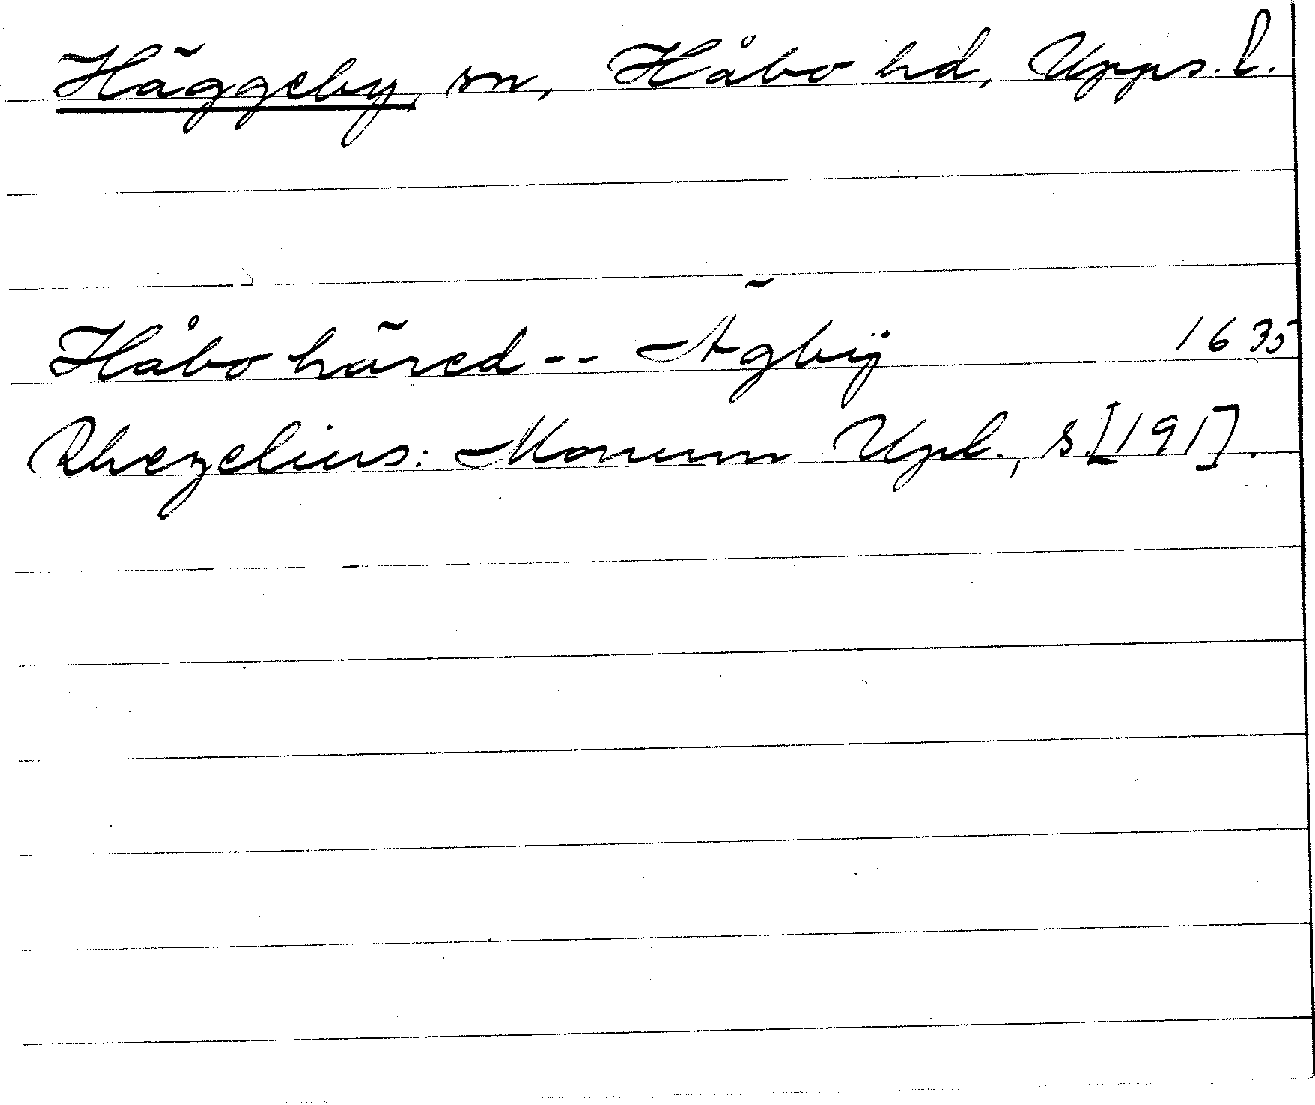 Häggeby, sn, Håbo hd, Upps. l.
Håbo häred -- Ägbÿ 1635
Rhezelius: Monum Upl., s. [191].